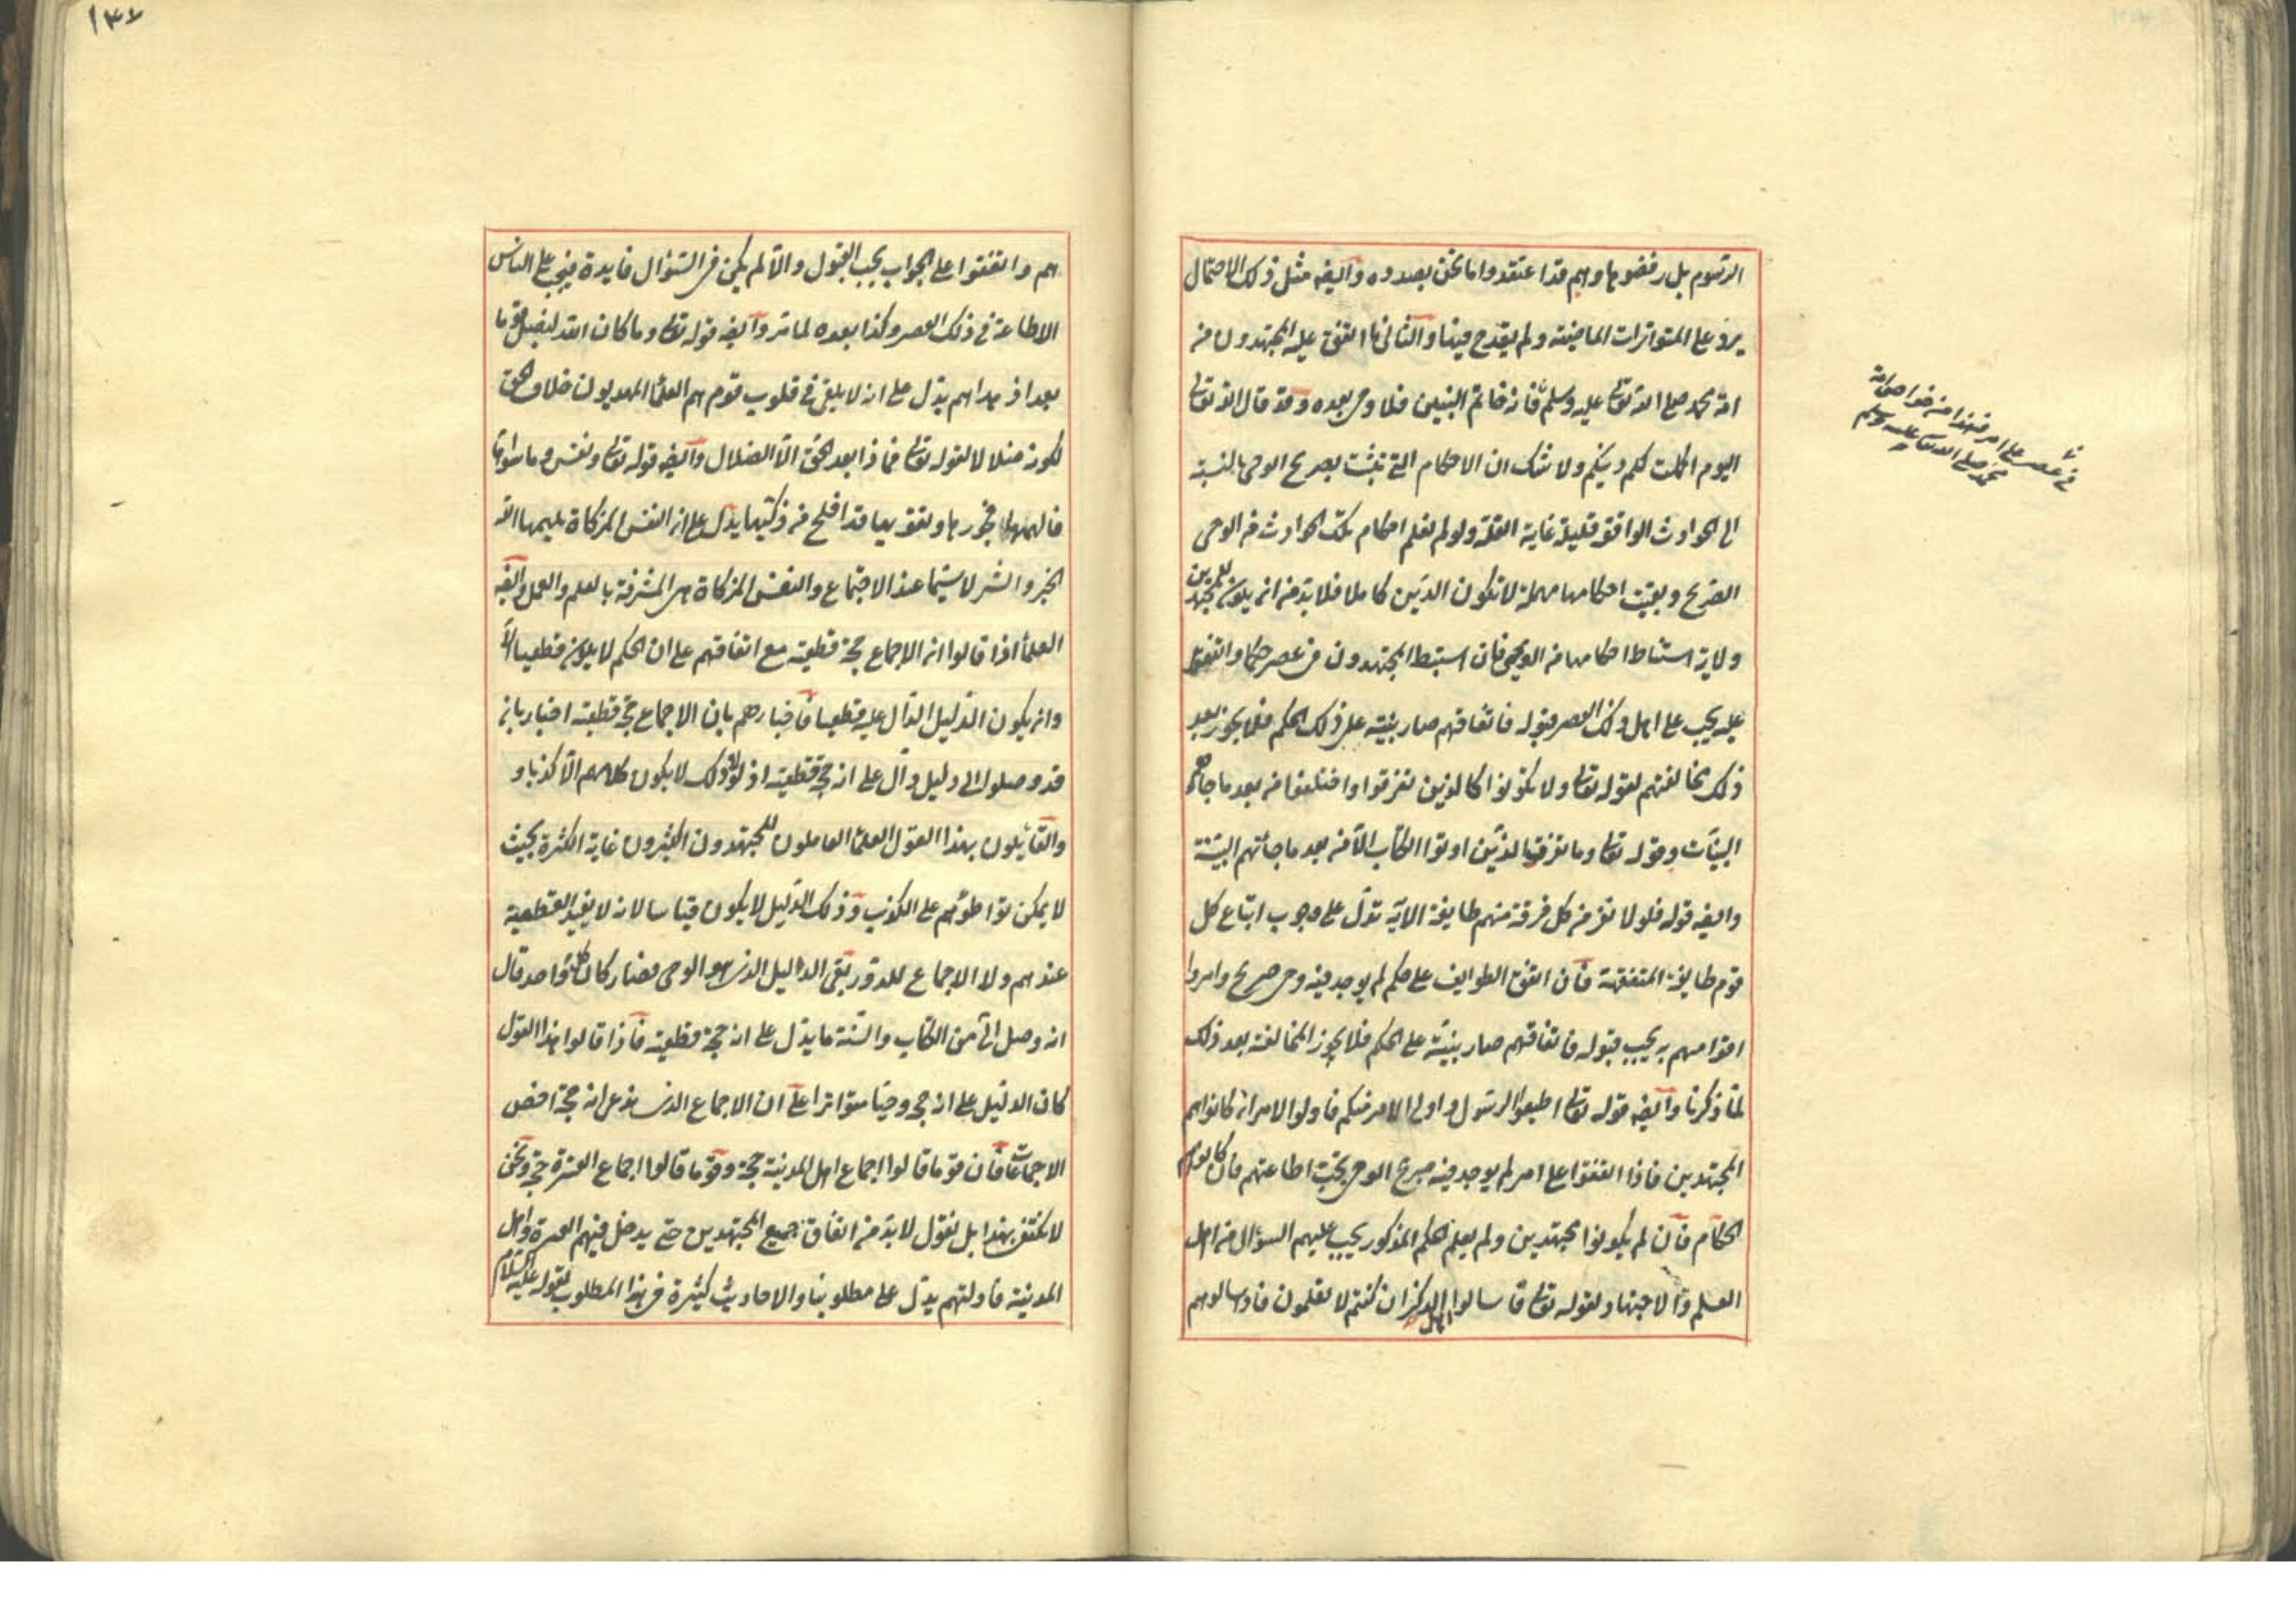 الرسوم بل رفضوها وهم قد اعتقدوا ما نحن بصدده وايضه مثل ذلك الاحتمال
يرد على المتواترات الماضية ولم يقدح فيها والثاني ما اتفق عليه المجتهدون من
امة محمد صلى الله تعالى عليه وسلم فانه خاتم النبيين فلا وحي بعده وقد قال الله تعالى
اليوم اكملت لكم دينكم ولا شك ان الاحكام التي تثبت بصريح الوحي بالنسبة
الى الحوادث الواقعة قليلة غاية القلة ولو لم نعلم احكام تلك الحوادث من الوحي
الصريح وبقيت احكامها مهملة لا يكون الدين كاملا فلا بد من ان يكون للمجتهدين
ولاية استنباط احكامها من الوحي فان استنبط المجتهدون في عصر حكما واتفقوا
عليه يجب على اهل ذلك العصر قبوله فاتفاقهم صار بينة على ذلك الحكم فلا يجوز بعد
ذلك مخالفتهم لقوله تعالى ولا تكونوا كالذين تفرقوا واختلفوا من بعد ما جاءهم
البينات وقوله تعالى وما تفرق الذين اوتوا الكتاب الا من بعد ما جائتهم البينة
وايضه قوله فلولا نفر من كل فرقة منهم طايفة الاية تدل على وجوب اتباع كل
قوم طايفة المتفقهة فان اتفق الطوايف على حكم لم يوجد فيه وحي صريح وامروا
اقوامهم به يجب قبوله فاتفاقهم صار بينة على الحكم فلا يجوز المخالفة بعد ذلك
لما ذكرنا وايضه قوله تعالى اطيعوا الرسول واولى الامر منكم فاولوا الامر ان كانوا هم
المجتهدين فاذا اتفقوا على امر لم يوجد فيه صريح الوحي يجب اطاعتهم فان كانوا هم
الحكام فان لم يكونوا مجتهدين ولم يعلم الحكم المذكور يجب عليهم السؤال من اهل
العلم والاجتهاد لقوله تعالى فاسالوا اهل الذكر ان كنتم لا تعلمون فاذا سالوهم
في عصر على امر من خواص امة
محمد صلى الله تعالى عليه وسلم
١٣٧
هم واتفقوا على الجواب يجب القبول والا لم يكن في السؤال فايدة فيجب على الناس
الاطاعة في ذلك العصر وكذا بعده لما مر وايضه قوله تعالى وما كان الله ليضل قوما
بعد اذ هداهم يدل على انه لا يلقى في قلوب قوم هم العلماء المهديون خلاف الحق
لكونه ضلالا لقوله تعالى فماذا بعد الحق الا الضلال وايضه قوله تعالى ونفس وما سواها
فالهمها فجورها وتقويها قد افلح من زكيها يدل على ان النفس المزكاة يلهمها الله
الخير والشر لا سيما عند الاجتماع والنفس المزكاة هي المشرفة بالعلم والعمل وايضه
العلماء اذا قالوا ان الاجماع حجة قطعية مع اتفاقهم على ان الحكم لا يكون قطعيا الا
وان يكون الدليل الدال عليه قطعيا فاخبارهم بان الاجماع حجة قطعية اخبار بانه
قد وصلوا الى دليل دال على انه حجة قطعية اذ لولا ذلك لا يكون كلامهم الا كذبا و
والقايلون بهذا القول العلماء العاملون المجتهدون الكثيرون غاية الكثرة بحيث
لا يمكن تواطؤهم على الكذب وذلك الدليل لا يكون قياسا لانه لا يفيد القطعية
عندهم ولا الاجماع للدور بقى الدليل الذي هو الوحي فصار كان كل واحد قال
انه وصل الى من الكتاب والسنة ما يدل على انه حجة قطعية فاذا قالوا هذا القول
كان الدليل على انه حجة وحيا متواترا على ان الاجماع الذي ندعي انه حجة اخص
الاجماعات فان قوما قالوا اجماع اهل المدينة حجة وقوما قالوا اجماع العترة حجة ونحن
لا نكتفي بهذا بل نقول لا بد من اتفاق جميع المجتهدين حتى يدخل فيهم العترة واهل
المدينة فادلتهم يدل على مطلوبنا والاحاديث كثيرة في هذا المطلوب لقوله عليه السلام